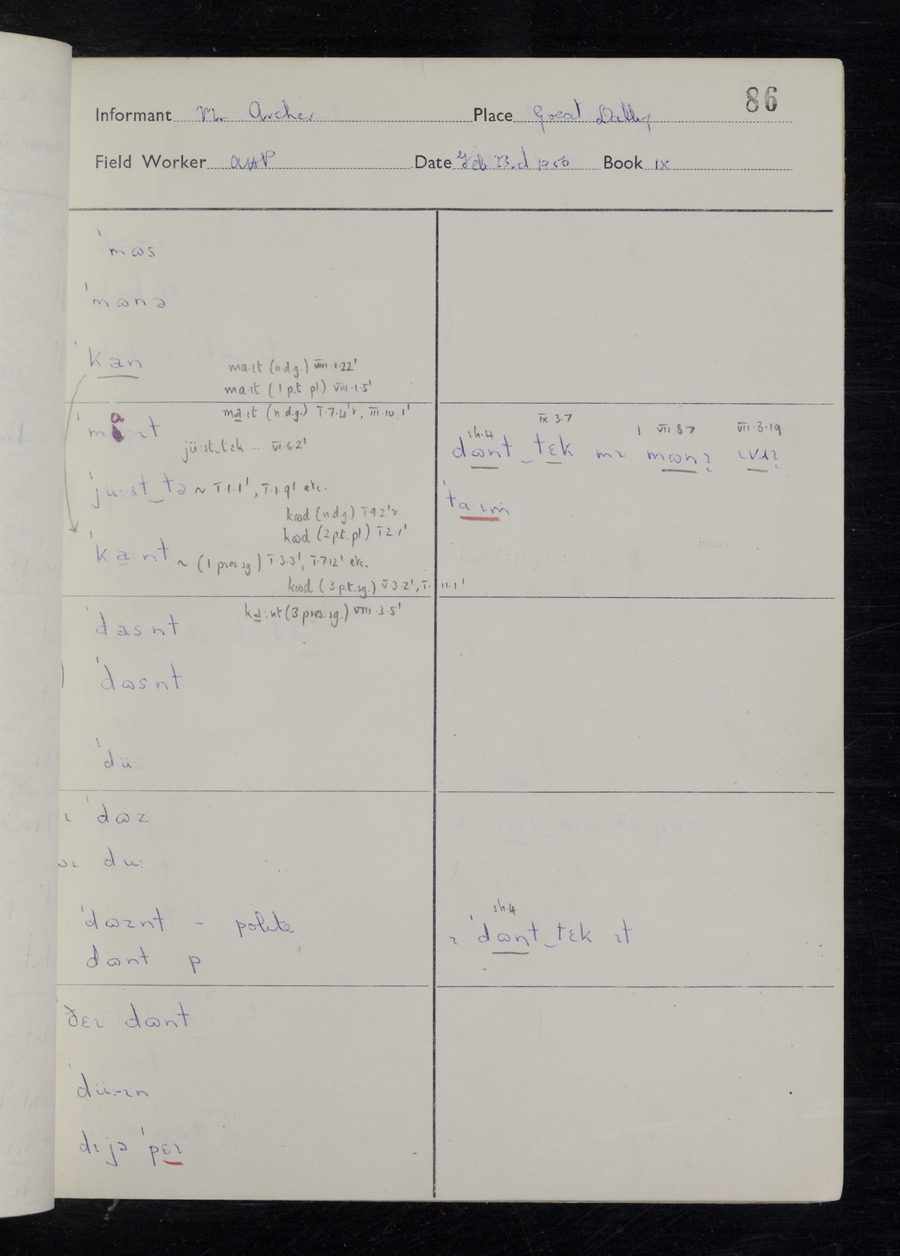 86
Informant Mr Archer Place Great Dalby
Field Worker Date Feb 23rd 1956 Book IX
ˈmɷs
ˈmɷnə
ˈkan
ma·ɪt (n.d.g.) VIII·1·22'
ma·ɪt (1 p.t. pl) VIII·1·5'
ma·ɪt (n.d.g.) I·7·4'r, III·10·1'
jü:st_tɛk ... VI·6·2'
ˈjü:st_tə ~ I·1·1', I·1·9' etc.
kɷd (n.d.g) I·9·2'r
kɷd (2 p.t. pl) I·2·1'
ˈka·nt ~ (1 pres. sg.) I·3·3', I·7·12' etc.
kɷd (3 p.t. sg.) V·3·2', I·11·1'
ka:nt (3 pres. sg.) VIII·3·5'
ˈdasnt
ˈdɷsnt
ˈdü
ɪ ˈdɷz
du:
ˈdɷznt - polite
dɷnt p
ðɛɪ dɷnt
ˈdü:ɪn
dɪjə ˈpɛɪ
sh.4 IX·3·7 1 VII·8·7 VII·8·19
dɷnt_tɛk mɪ mɷnɪ
ˈtaɪm
sh.4
ɪ ˈdɷnt_tɛk ɪt